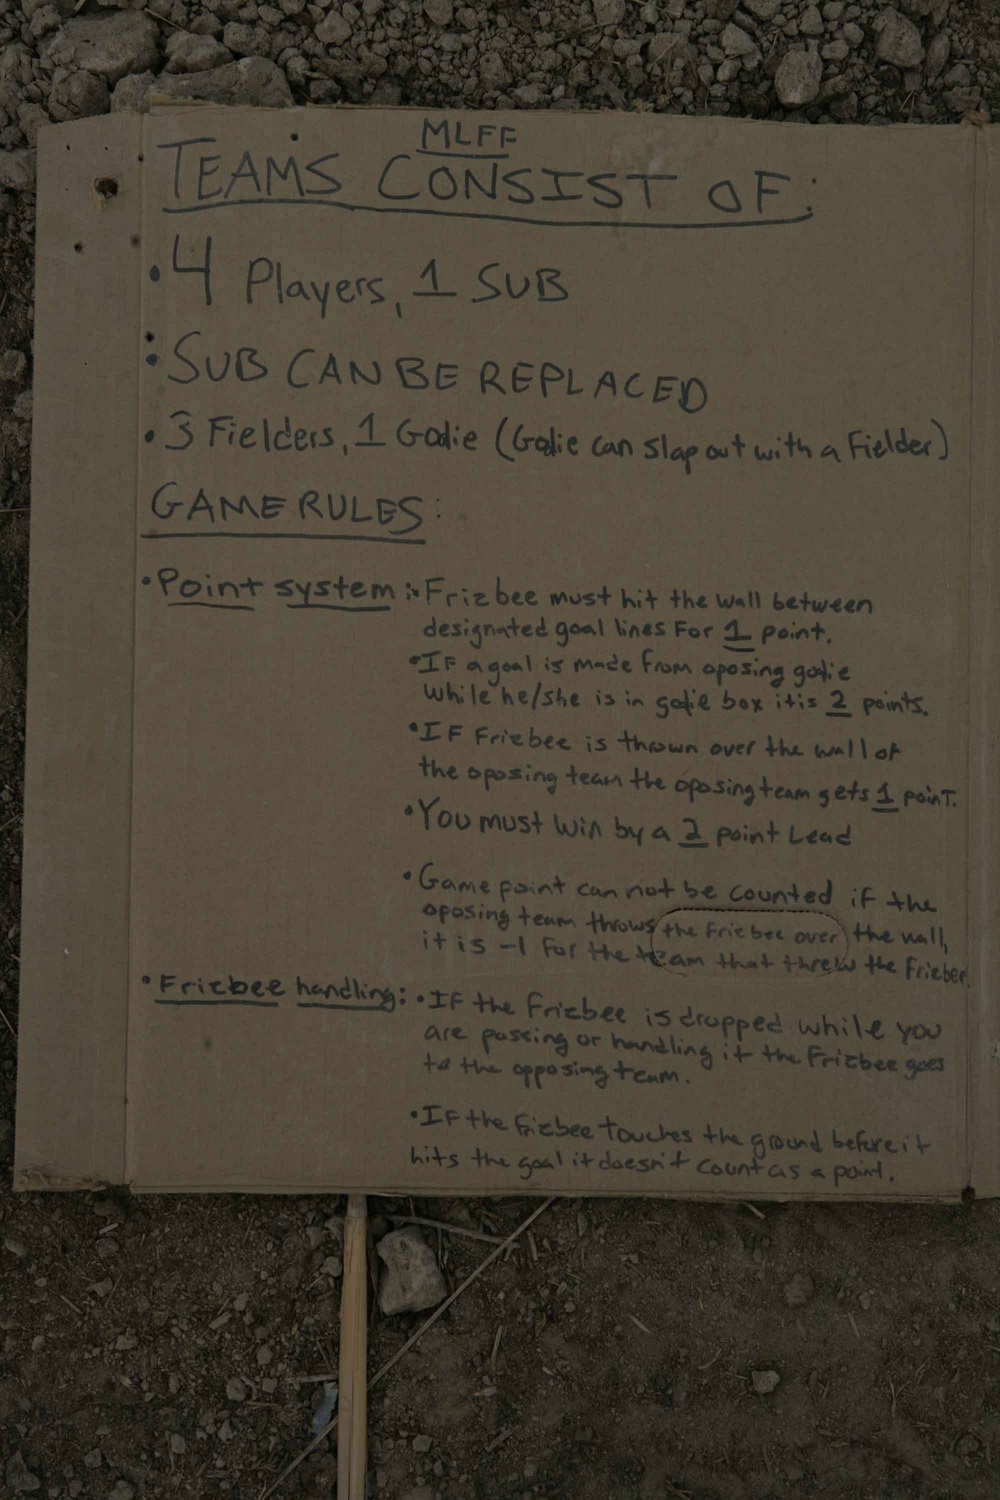 MLFF
TEAMS CONSIST OF:
• 4 Players, 1 SUB
• SUB CAN BE REPLACED
• 3 Fielders, 1 Golie (Golie can slap out with a Fielder)
GAME RULES:
• Point system: • Frizbee must hit the wall between
designated goal lines For 1 point.
• IF a goal is made from oposing golie
while he/she is in golie box it is 2 points.
• IF Frizbee is thrown over the wall of
the oposing team the oposing team gets 1 point.
• You must win by a 2 point Lead
• Game point can not be counted if the
oposing team throws the Frizbee over the wall,
it is -1 for the team that threw the Frizbee.
• Frizbee handling: • IF the Frizbee is dropped while you
are passing or handling it the Frizbee goes
to the opposing team.
• IF the Frizbee touches the ground before it
hits the goal it doesn't count as a point.